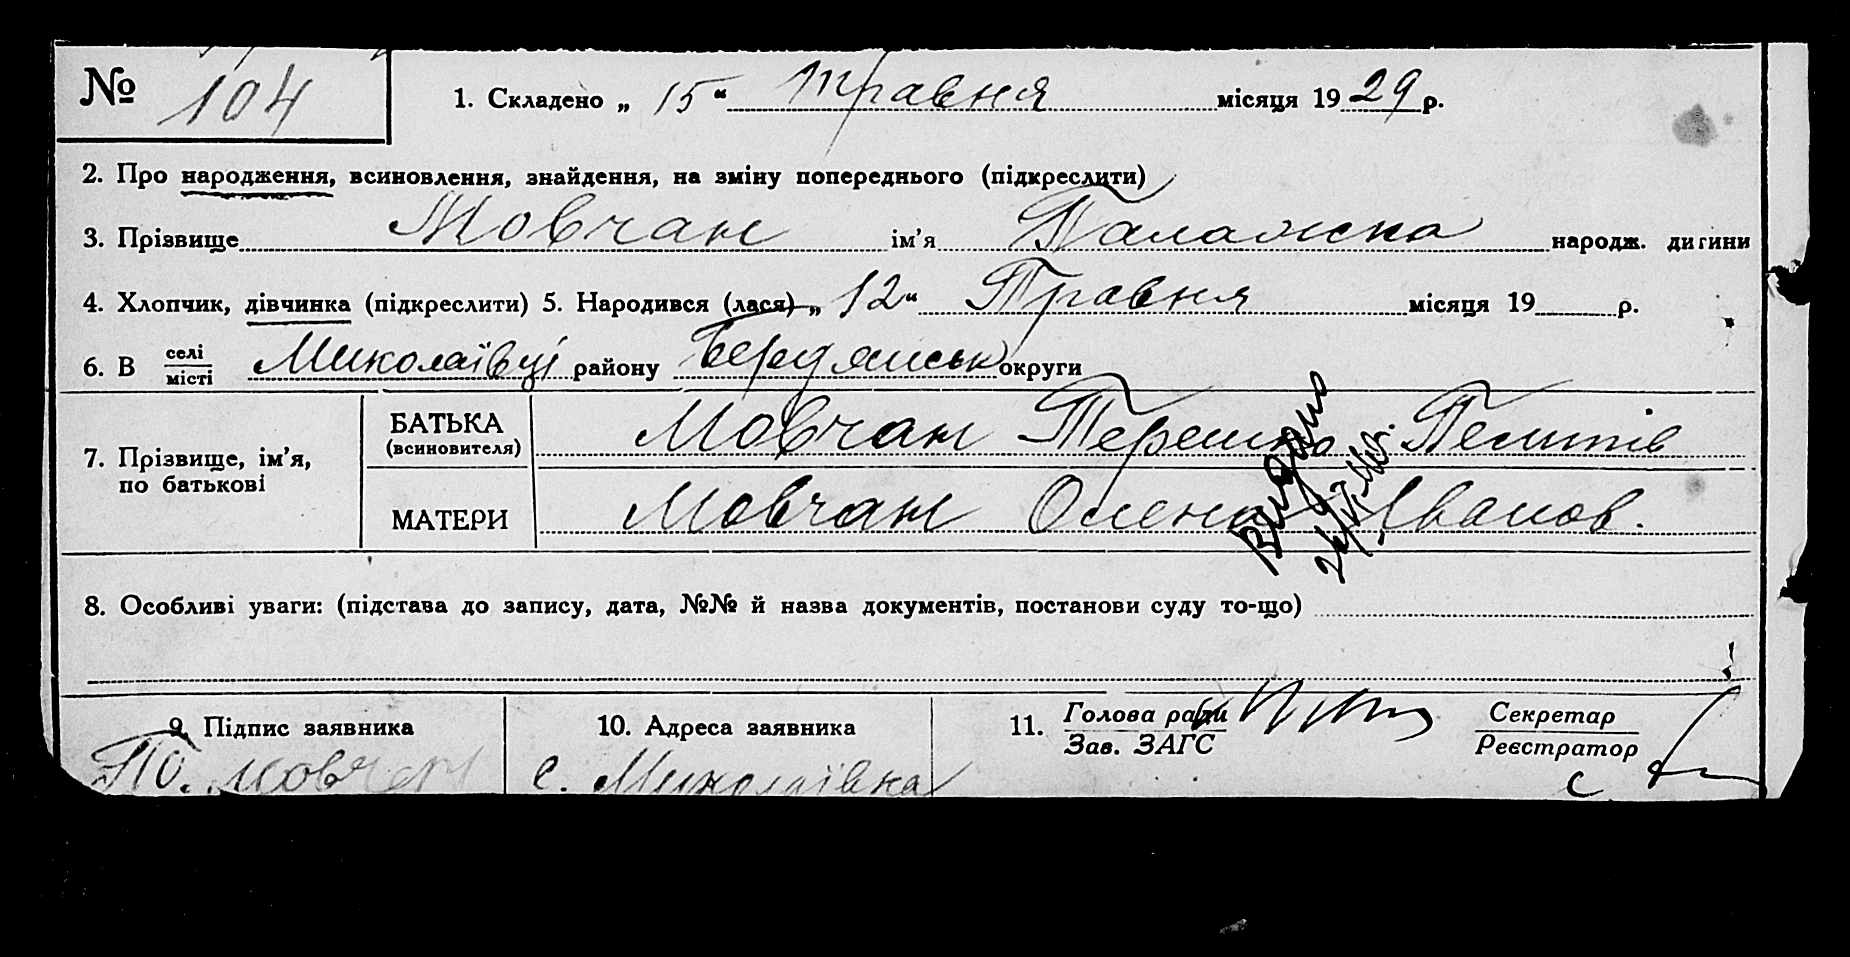 № 104
1. Складено „ 15 “ Травня місяця 19 29 р.
2. Про народження, всиновлення, знайдення, на зміну попереднього (підкреслити)
3. Прізвище Мовчан ім’я Палажка народж. дитини
4. Хлопчик, дівчинка (підкреслити) 5. Народився (лася) „ 12 “ Травня місяця 19 р.
6. В селі/місті Миколаївці району Бердянськ округи
7. Прізвище, ім’я, по батькові
БАТЬКА (всиновителя) Мовчан Терешко
МАТЕРИ Мовчан Олена Іванов.
Видано
8. Особливі уваги: (підстава до запису, дата, №№ й назва документів, постанови суду то-що)
9. Підпис заявника
Мовчан
10. Адреса заявника
с. Миколаївка
11. Голова ради
Зав. ЗАГС
Секретар
Реєстратор